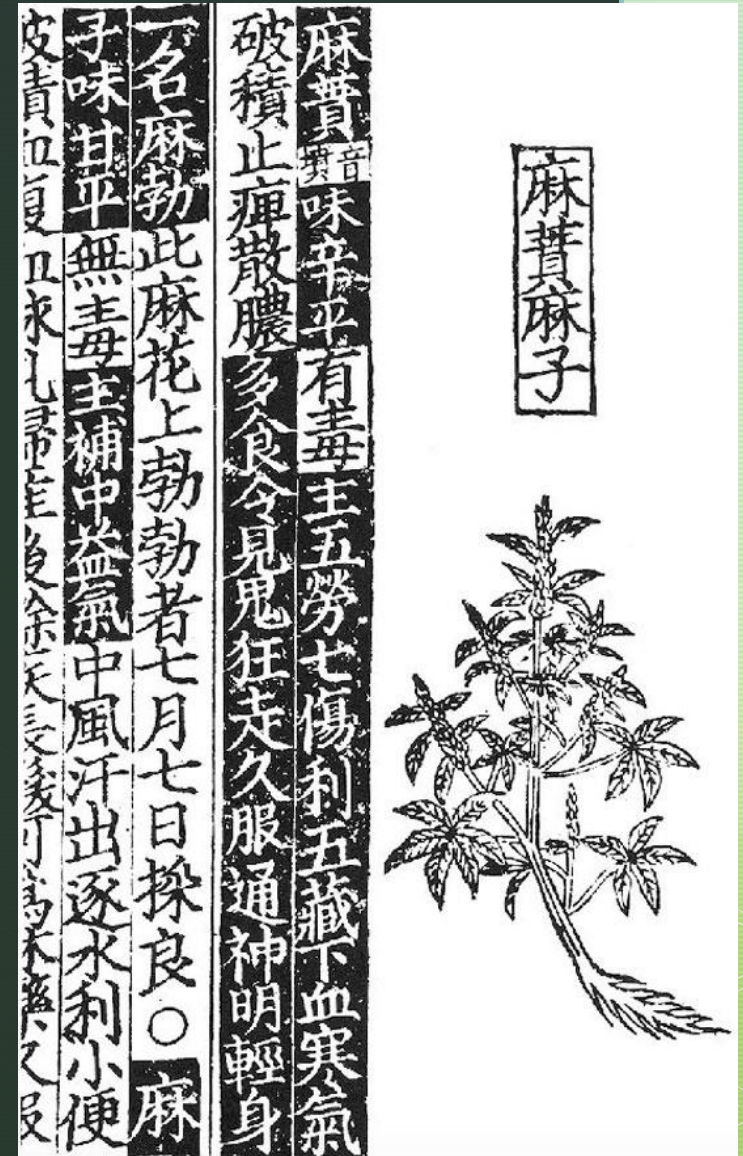 麻蕡麻子
麻蕡音墳味辛平有毒主五勞七傷利五藏下血寒氣
破積止痺散膿多食令見鬼狂走久服通神明輕身
一名麻勃此麻花上勃勃者七月七日採良○麻
子味甘平無毒主補中益氣中風汗出逐水利小便
破積血復血脉乳婦產後餘疾長髮可爲沐藥久服